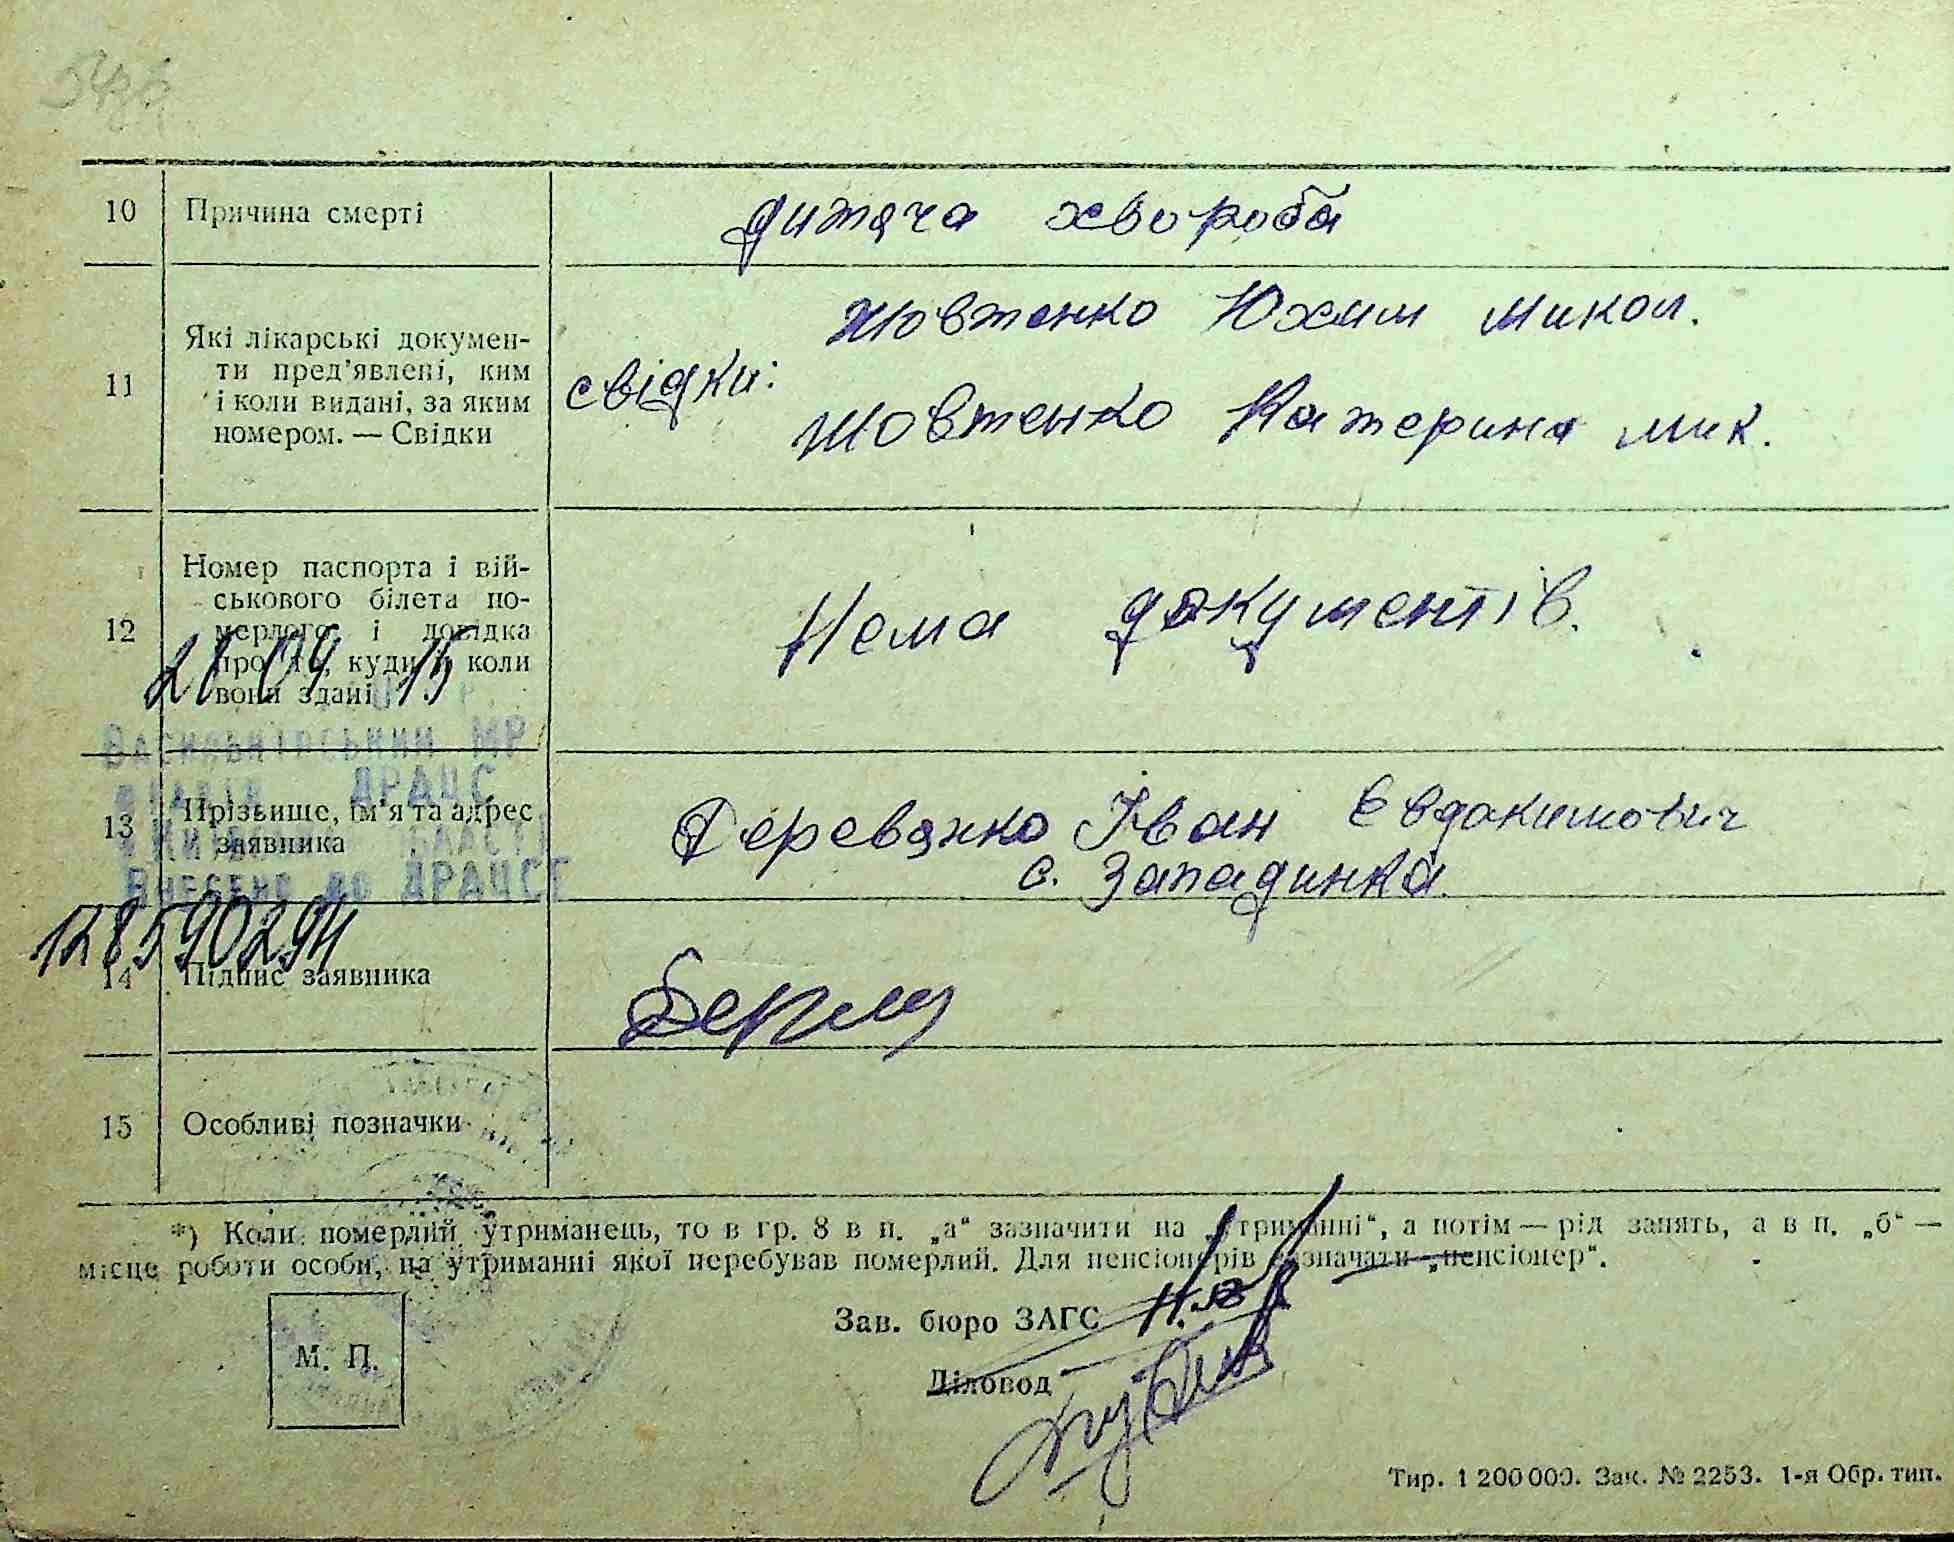 10 Причина смерті дитяча хвороба
Жовтенко Юхим Микол.
11 Які лікарські докумен-
ти пред'явлені, ким
і коли видані, за яким
номером. — Свідки
свідки:
Жовтенко Катерина Мик.
12 Номер паспорта і вій-
ськового білета по-
мерлого і довідка
про те, куди й коли
вони здані
Нема документів.
21 04 15
Васильківський МР
відділ ДРАЦС
Внесено до ДРАЦСГ
13 Прізьвище, ім'я та адрес
заявника
Деревянко Іван Євдокимович
с. Западинка
12859029
14 Підпис заявника
15 Особливі позначки
*) Коли померлий утриманець, то в гр. 8 в п. „а“ зазначити на „утриманні“, а потім — рід занять, а в п. „б“ —
місце роботи особи, на утриманні якої перебував померлий. Для пенсіонерів зазначати „пенсіонер“.
Зав. бюро ЗАГС
М. П.
Діловод
Тир. 1 200 000. Зак. № 2253. 1-я Обр. тип.